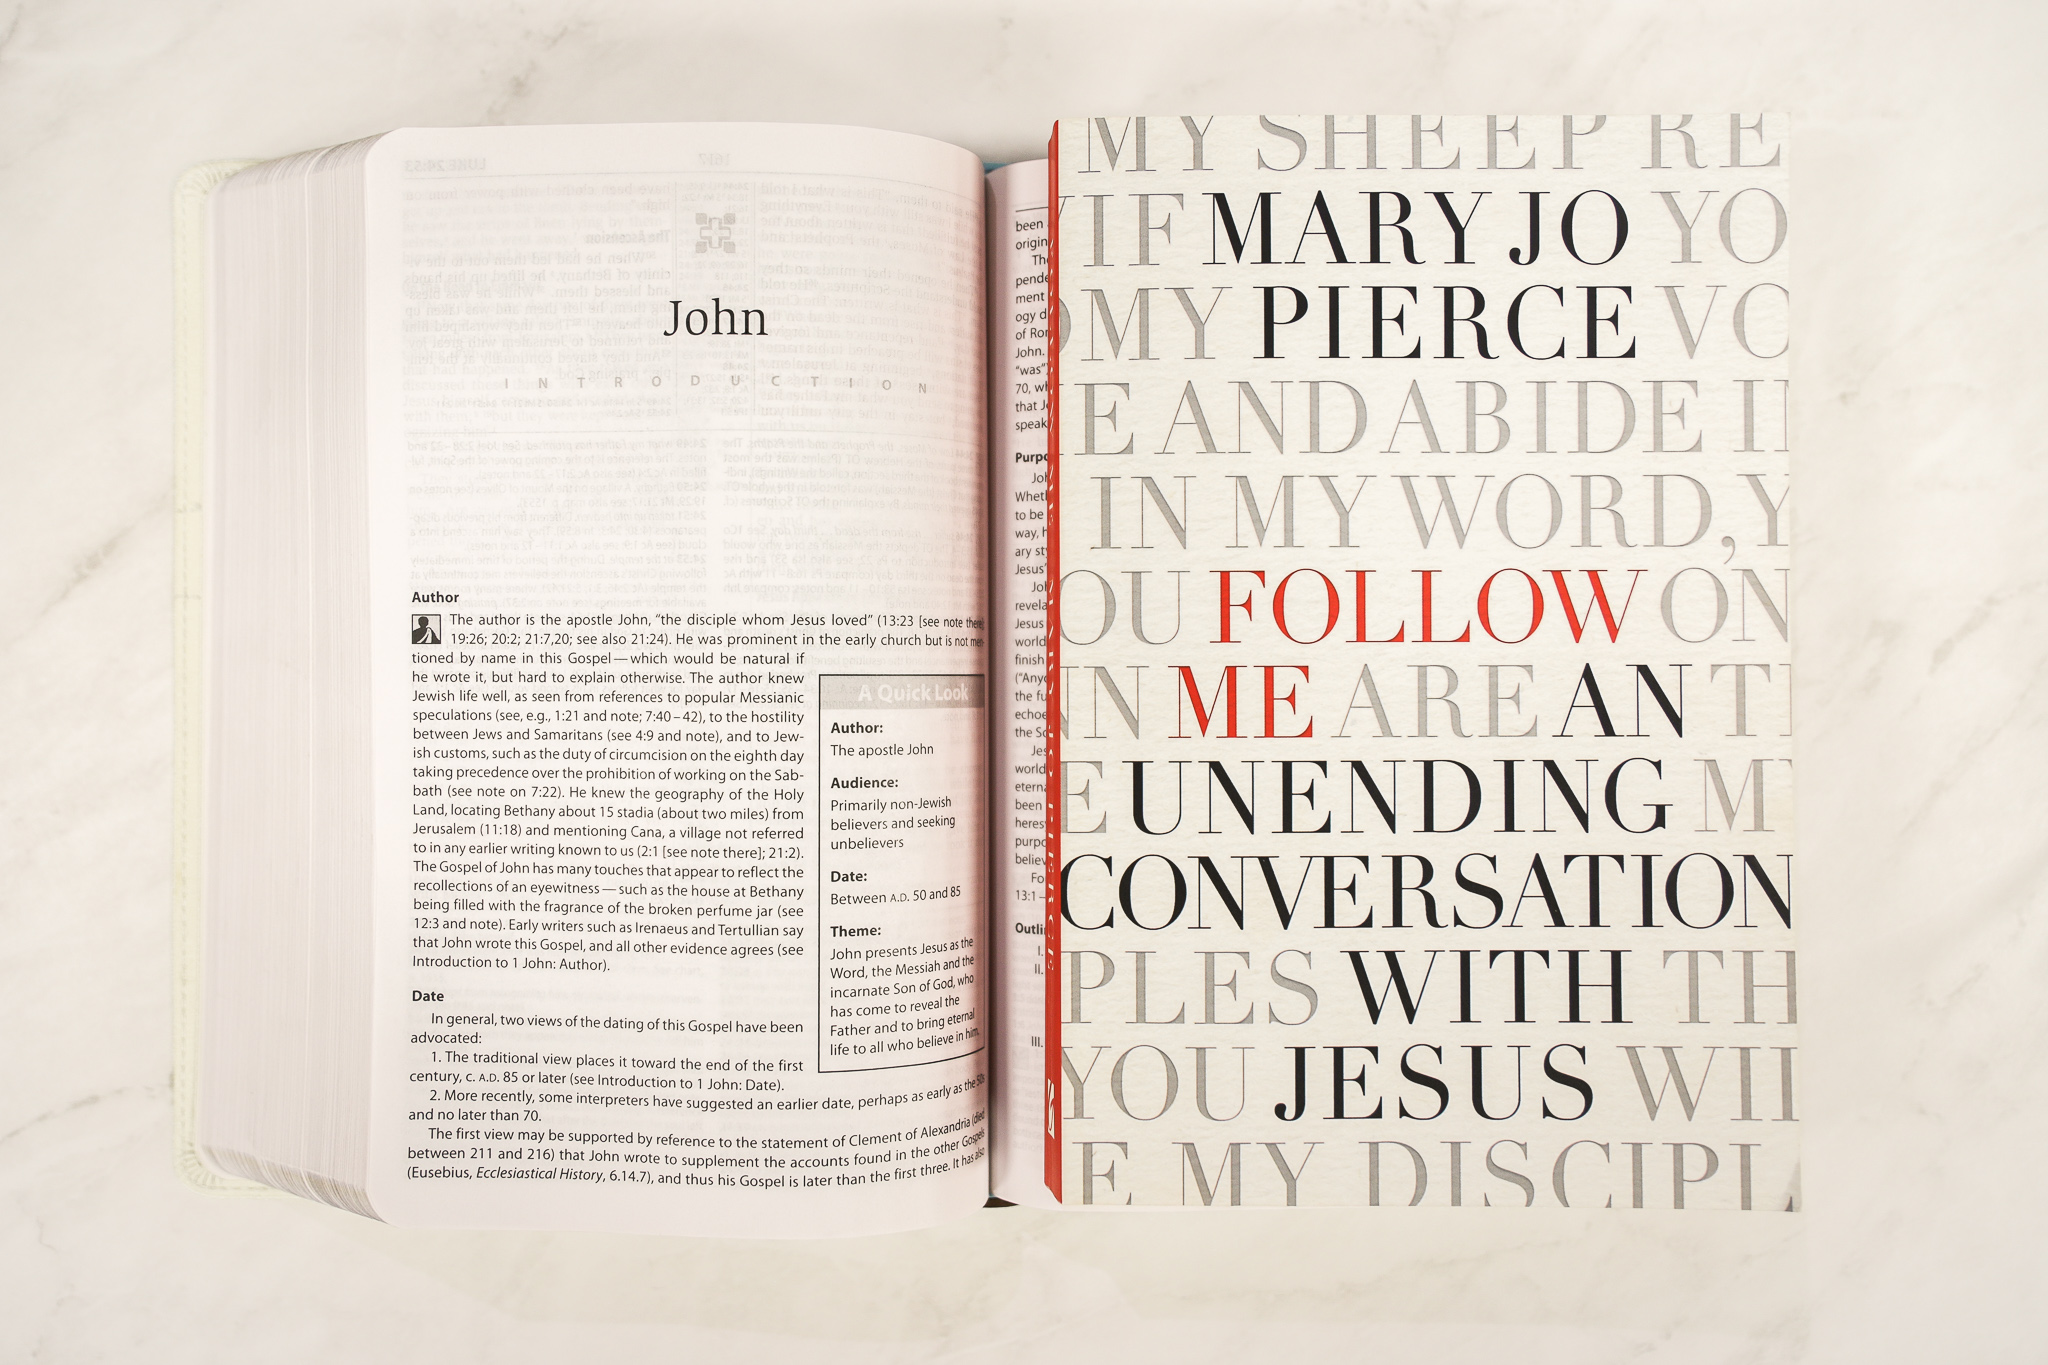 John
INTRODUCTION
Author
The author is the apostle John, “the disciple whom Jesus loved” (13:23 [see note there];
19:26; 20:2; 21:7,20; see also 21:24). He was prominent in the early church but is not men-
tioned by name in this Gospel — which would be natural if
he wrote it, but hard to explain otherwise. The author knew
Jewish life well, as seen from references to popular Messianic
speculations (see, e.g., 1:21 and note; 7:40 – 42), to the hostility
between Jews and Samaritans (see 4:9 and note), and to Jew-
ish customs, such as the duty of circumcision on the eighth day
taking precedence over the prohibition of working on the Sab-
bath (see note on 7:22). He knew the geography of the Holy
Land, locating Bethany about 15 stadia (about two miles) from
Jerusalem (11:18) and mentioning Cana, a village not referred
to in any earlier writing known to us (2:1 [see note there]; 21:2).
The Gospel of John has many touches that appear to reflect the
recollections of an eyewitness — such as the house at Bethany
being filled with the fragrance of the broken perfume jar (see
12:3 and note). Early writers such as Irenaeus and Tertullian say
that John wrote this Gospel, and all other evidence agrees (see
Introduction to 1 John: Author).
A Quick Look
Author:
The apostle John
Audience:
Primarily non-Jewish
believers and seeking
unbelievers
Date:
Between A.D. 50 and 85
Theme:
John presents Jesus as the
Word, the Messiah and the
incarnate Son of God, who
has come to reveal the
Father and to bring eternal
life to all who believe in him.
Date
In general, two views of the dating of this Gospel have been
advocated:
1. The traditional view places it toward the end of the first
century, c. A.D. 85 or later (see Introduction to 1 John: Date).
2. More recently, some interpreters have suggested an earlier date, perhaps as early as the 50s
and no later than 70.
The first view may be supported by reference to the statement of Clement of Alexandria (died
between 211 and 216) that John wrote to supplement the accounts found in the other Gospels
(Eusebius, Ecclesiastical History, 6.14.7), and thus his Gospel is later than the first three. It has also
been
origin
pende
ment
ogy d
of Ro
John.
“was”
70, wh
that J
speak
Purpo
Whet
to be
way, h
ary st
Jesus’
revela
Jesus
world
finish
(“Anyo
the fu
echoe
the So
Jes
world
eterna
been
heresy
purpo
believ
Fo
13:1 –
Outli
I.
II.
III.
MY SHEEP RE
IF MARY JO YO
MY PIERCE VO
E AND ABIDE IN
IN MY WORD, Y
OU FOLLOW ON
IN ME ARE AN T
E UNENDING M
CONVERSATION
PLES WITH TH
YOU JESUS WIL
E MY DISCIPL